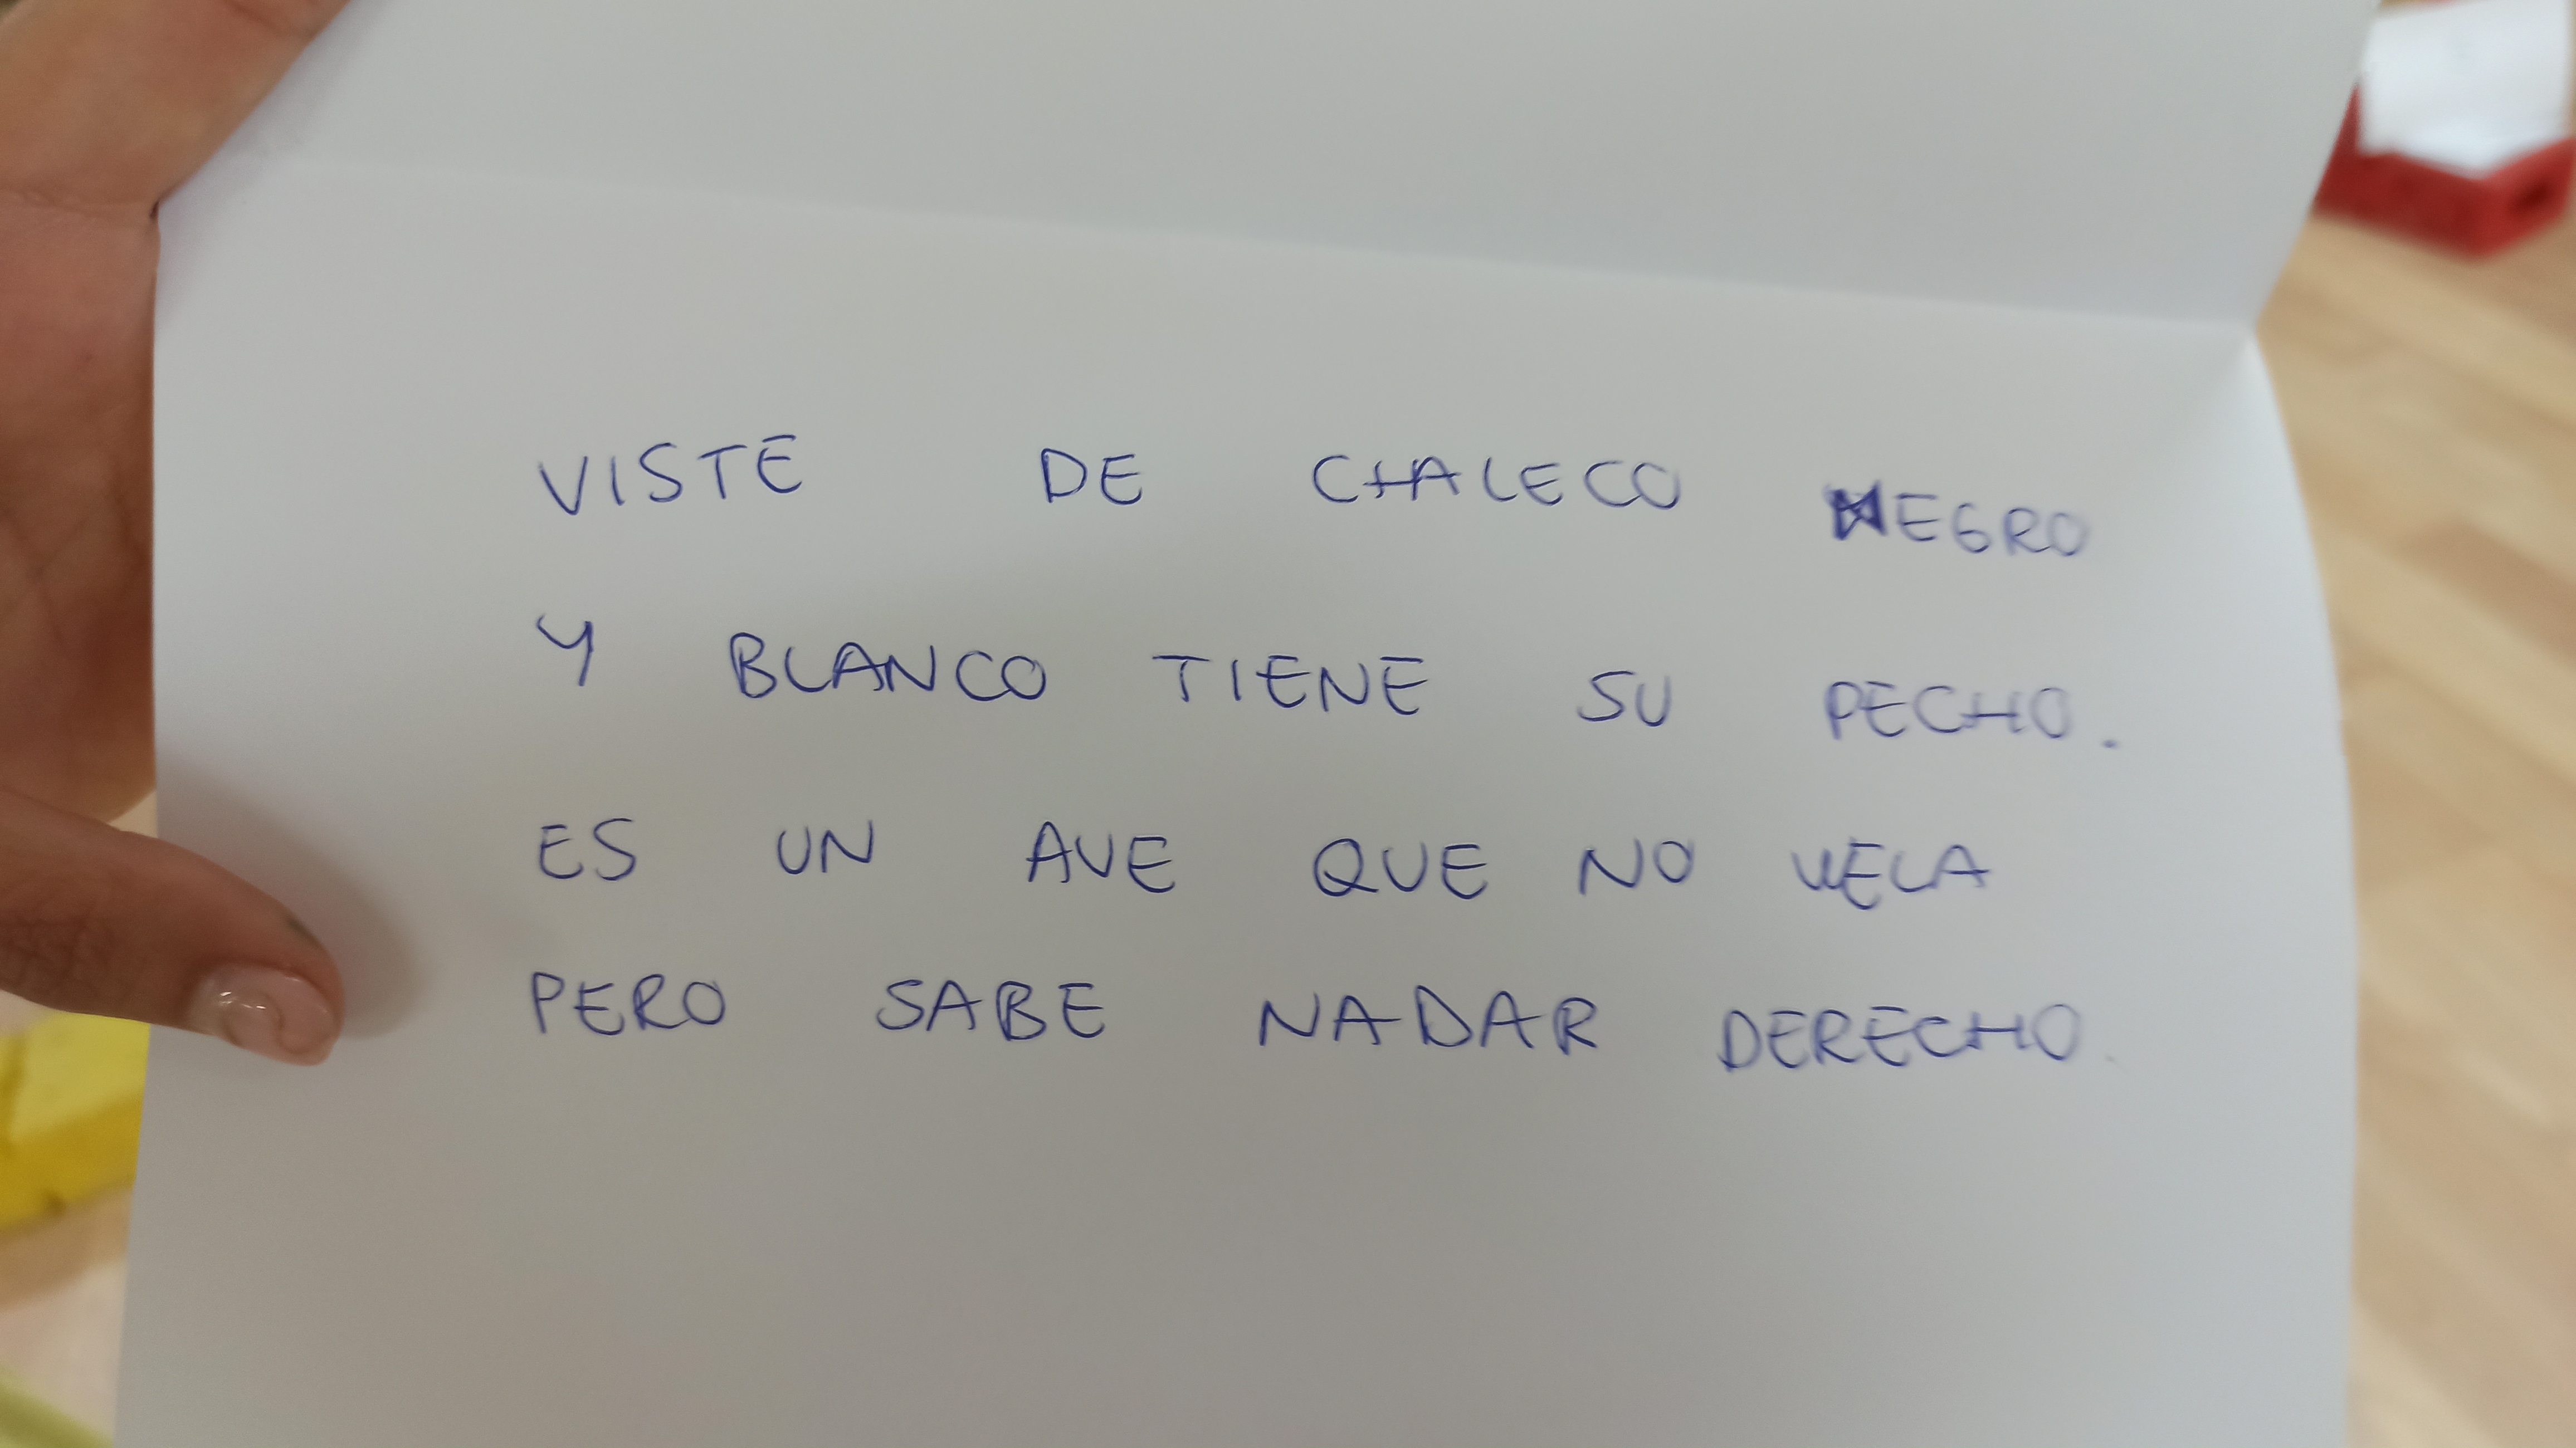 VISTE DE CHALECO NEGRO
Y BLANCO TIENE SU PECHO.
ES UN AVE QUE NO VUELA
PERO SABE NADAR DERECHO.